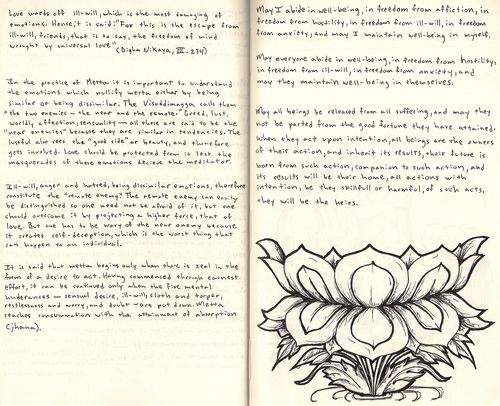 Love wards off ill-will, which is the most damaging of
emotions. Hence, it is said: "For this is the escape from
ill-will, friends, that is to say, the freedom of mind
wrought by universal love"
(Digha Nikaya, III. 234)
In the practice of Metta it is important to understand
the emotions which nullify metta either by being
similar or being dissimilar. The Visuddimagga calls them
the two enemies — the near and the remote. Greed, lust,
worldly affection, sensuality — all these are said to be the
"near enemies" because they are similar in tendencies. The
lustful also sees the "good side" or beauty, and therefore
gets involved. Love should be protected from it lest the
masquerades of these emotions deceive the meditator.
Ill-will, anger and hatred, being dissimilar emotions, therefore
constitute the "remote enemy". The remote enemy can easily
be distinguished so one need not be afraid of it, but one
should overcome it by projecting a higher force, that of
love. But one has to be wary of the near enemy because
it creates self-deception, which is the worst thing that
can happen to an individual.
It is said that metta begins only when there is zeal in the
form of a desire to act. Having commenced through earnest
effort, it can be continued only when the five mental
hinderances — sensual desire, ill-will, sloth and torpor,
restlessness and worry, and doubt — are put down. Metta
reaches consummation with the attainment of absorption
(jhana).
May I abide in well-being, in freedom from affliction, in
freedom from hostility, in freedom from ill-will, in freedom
from anxiety, and may I maintain well-being in myself.
May everyone abide in well-being, in freedom from hostility,
in freedom from ill-will, in freedom from anxiety, and
may they maintain well-being in themselves.
May all beings be released from all suffering, and may they
not be parted from the good fortune they have attained.
When they act upon intention, all beings are the owners
of their action, and inherit its results, their future is
born from such action, companion to such action, and
its results will be their home, all actions with
intention, be they skillful or harmful, of such acts,
they will be the heirs.